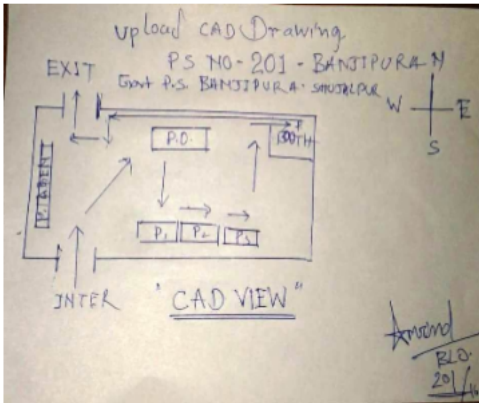 Upload CAD Drawing
PS NO-201-BANJIPURA
Govt P.S. BANJIPURA-SHUJALPUR
N
W E
S
EXIT
P.O.
BOOTH
P1 P2 P3
INTER
"CAD VIEW"
Arvind
BLO.
201